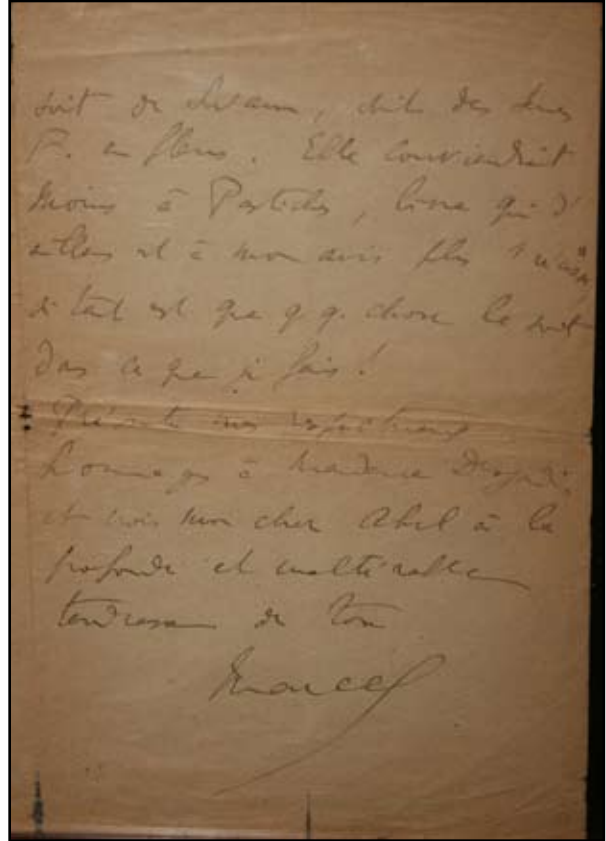 soit de Swann, soit des Jnes
F. en fleurs. Elle conviendrait
moins à Pastiches, livre qui d'
ailleurs est à mon avis plus
si tant est que q.q. chose le soit
dans ce que je fais !
Présente mes respectueux
hommages à Madame Desjardins
et crois mon cher Abel à la
profonde et inaltérable
tendresse de ton
Marcel